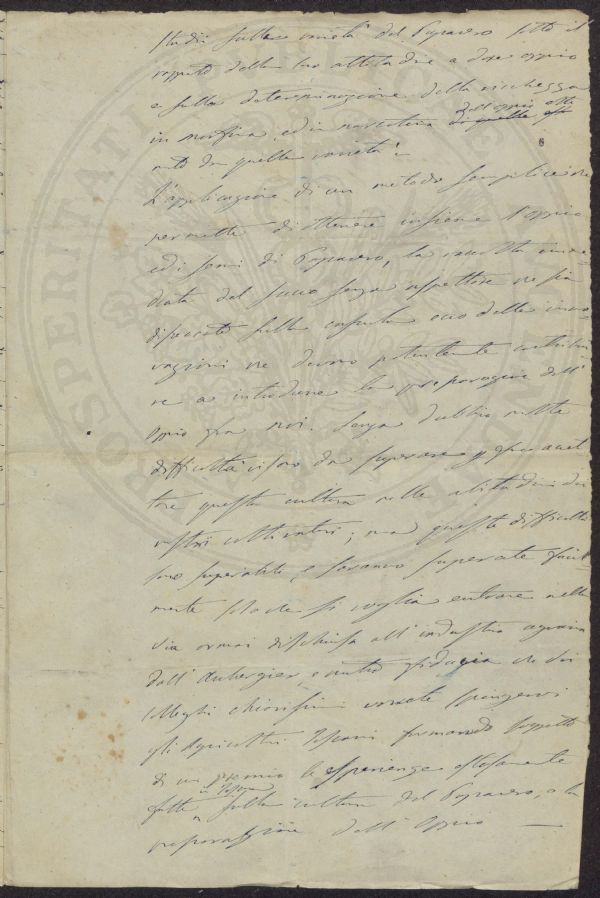 studii sulle varietà del Papavero sotto il
rapporto della loro attitudine a dare oppio
e sulla determinazione della ricchezza
in morfina, ed in narcotina dell'oppio otte
nuto da quelle varietà.
L'applicazione di un metodo semplice che
permette di ottenere insieme l'oppio
ed i semi di Papavero, la raccolta imme
diata del succo senza aspettare che sia
disseccato sulle capsule ecco delle inno
vazioni che devono potentemente contribui
re a introdurre la preparazione dell'
oppio fra noi. Senza dubbio molte
difficoltà vi sono da superare per far
questa cultura nelle abitudini dei
nostri cultivatori; ma queste difficoltà
sono superabili, e saranno superate facil
mente solo che si voglia entrare nella
via ormai dischiusa all'industria agraria
dall'Aubergier e nutro fiducia che voi
colleghi chiarissimi vorrete spingervi
gli Agricoltori Toscani formando soggetto
di un premio le esperienze
fatte in Toscana sulla cultura del Papavero, e la
preparazione dell'Oppio —
PROSPERITATI